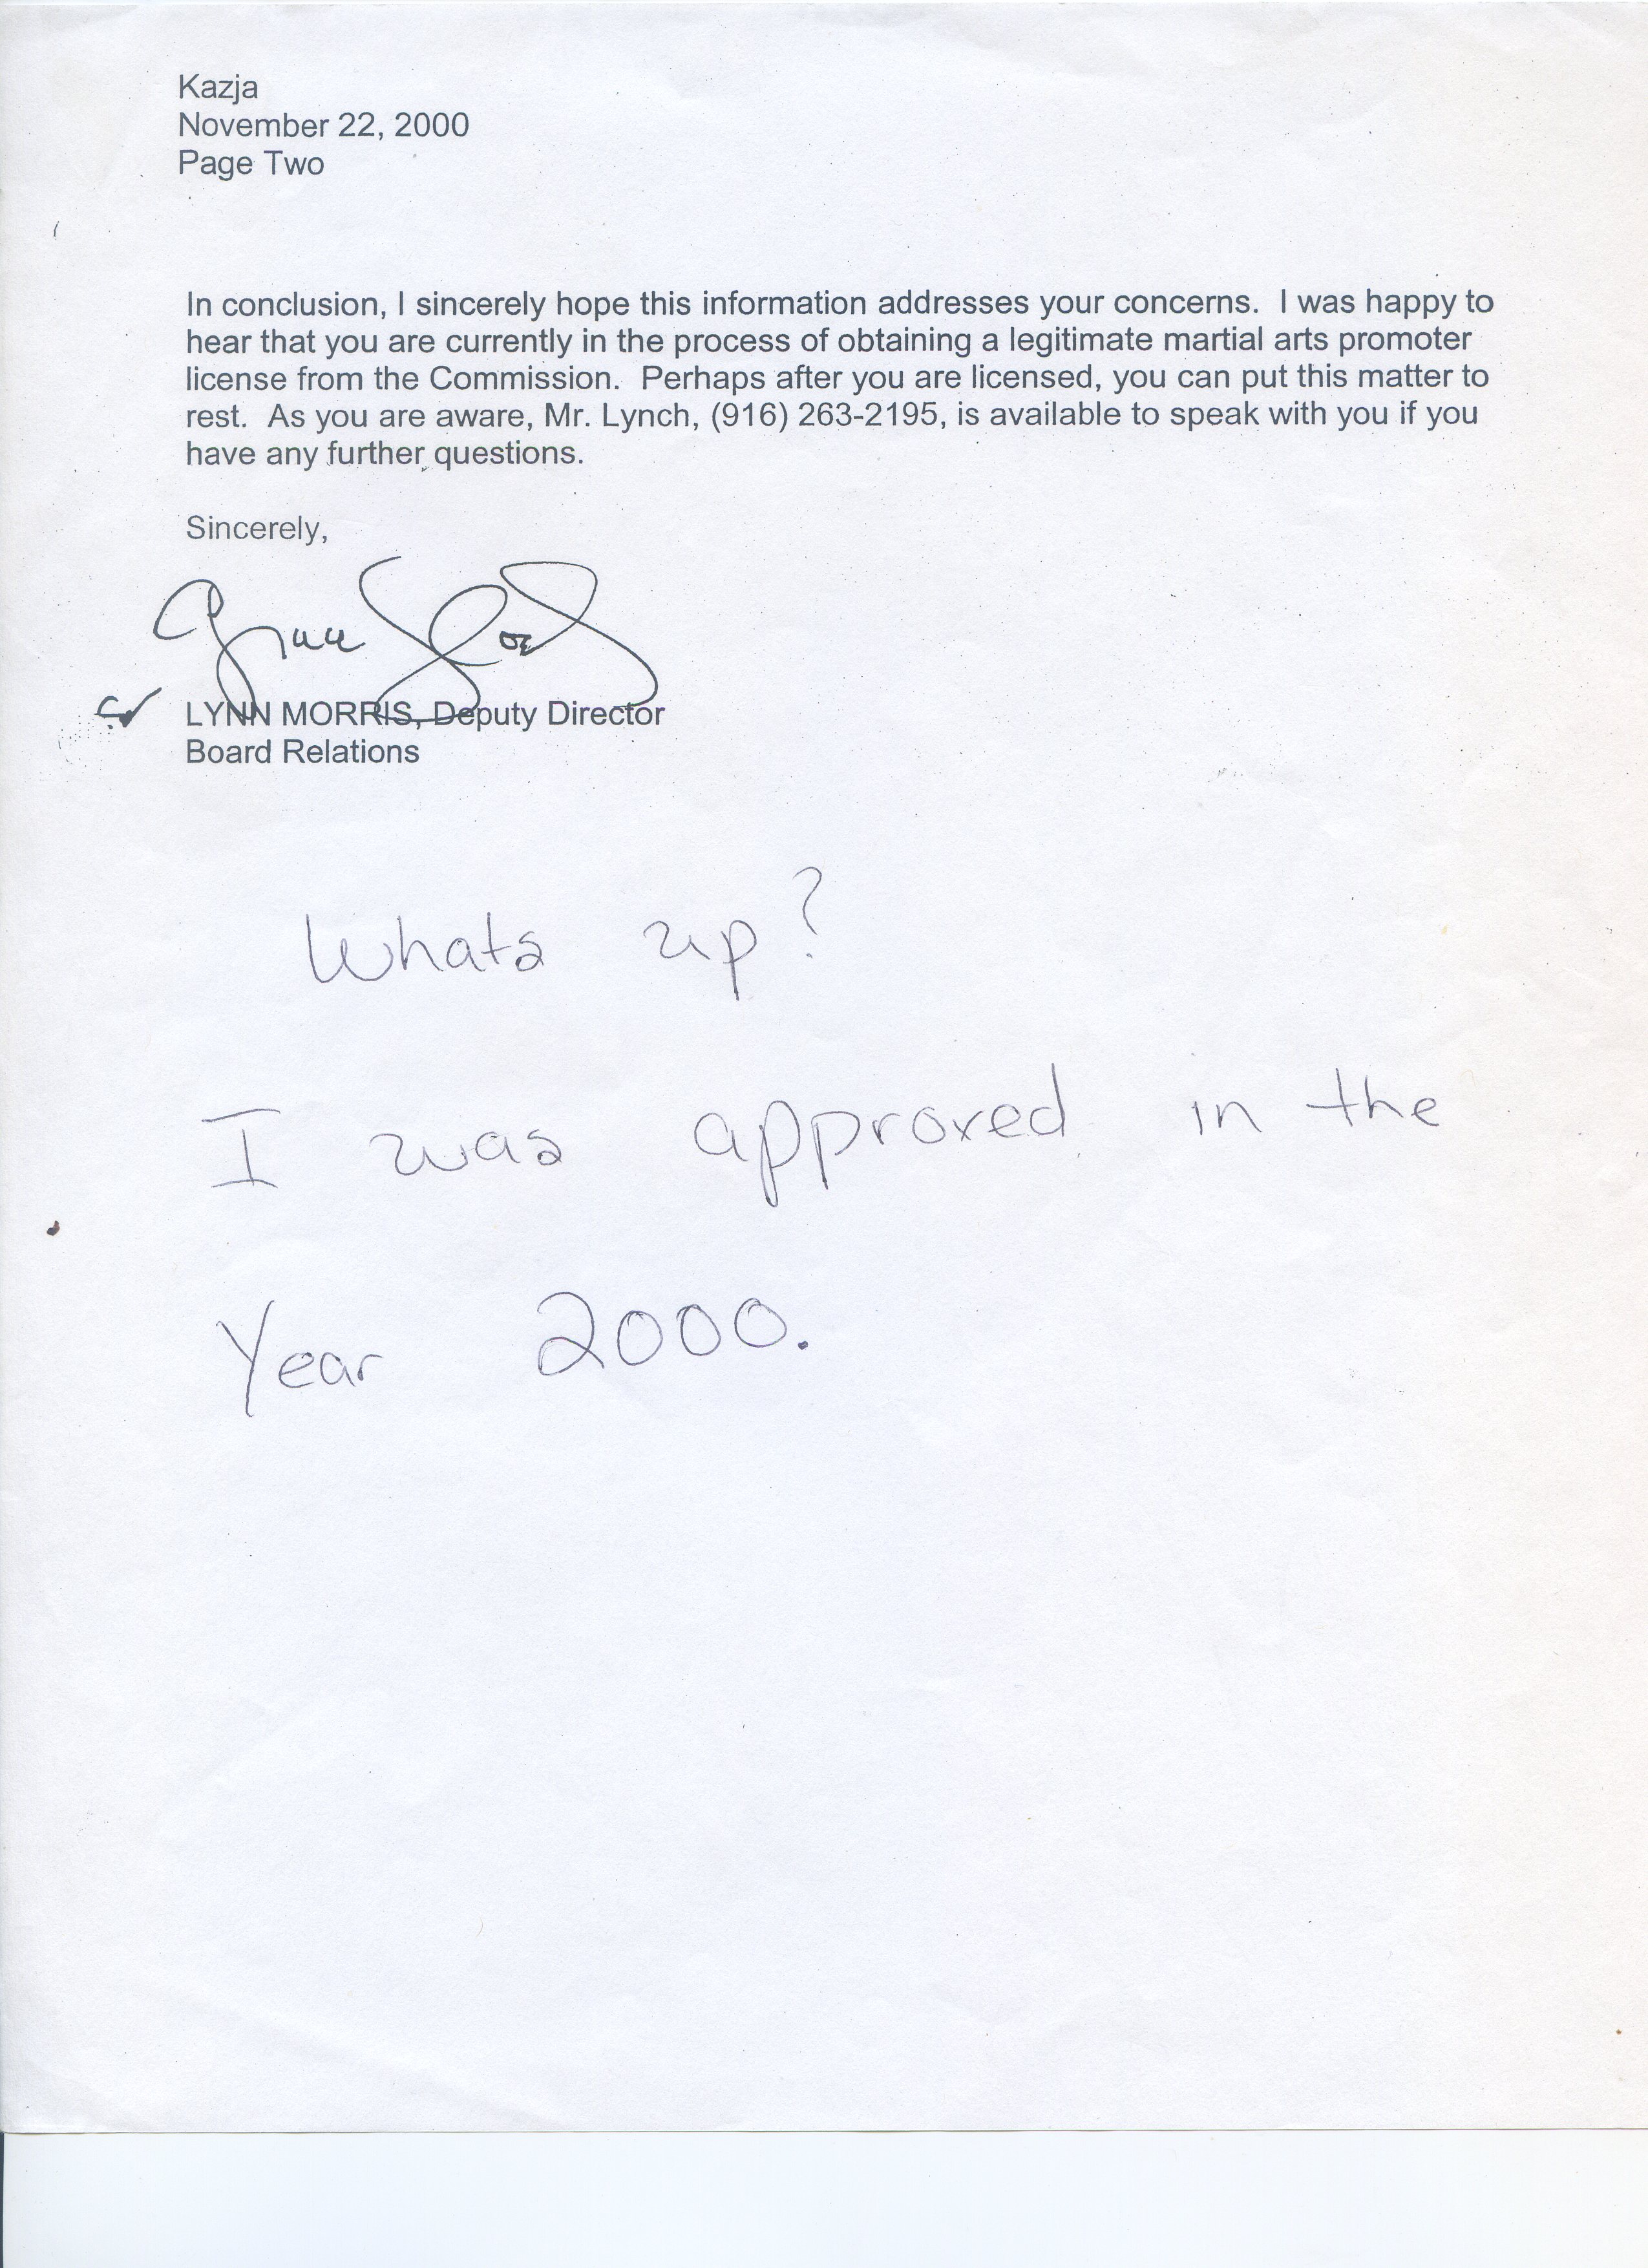 Kazja
November 22, 2000
Page Two
In conclusion, I sincerely hope this information addresses your concerns.  I was happy to
hear that you are currently in the process of obtaining a legitimate martial arts promoter
license from the Commission.  Perhaps after you are licensed, you can put this matter to
rest.  As you are aware, Mr. Lynch, (916) 263-2195, is available to speak with you if you
have any further questions.
Sincerely,
LYNN MORRIS, Deputy Director
Board Relations
Whats up?
I was approved in the
Year 2000.